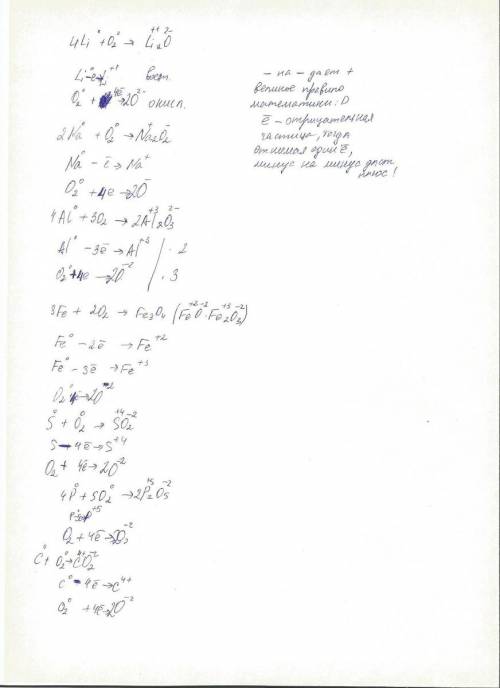 4Li⁰ + O₂⁰ → Li₂⁺¹O²⁻
Li⁰ - e → Li⁺¹ восст.
O₂⁰ + 4ē → 2O²⁻ окисл.
2Na⁰ + O₂⁰ → Na₂⁺O₂⁻
Na⁰ - ē → Na⁺
O₂⁰ + 4e → 2O⁻
4Al⁰ + 3O₂ → 2Al₂⁺³O₃²⁻
Al⁰ - 3ē → Al⁺³ | · 2
O₂⁰ + 4e → 2O⁻² | · 3
3Fe + 2O₂ → Fe₃O₄ (Fe⁺²O⁻² · Fe₂⁺³O₃⁻²)
Fe⁰ - 2ē → Fe⁺²
Fe⁰ - 3ē → Fe⁺³
O₂⁰ 4ē → 2O⁻²
S⁰ + O₂⁰ → S⁺⁴O₂⁻²
S - 4ē → S⁺⁴
O₂ + 4ē → 2O⁻²
4P⁰ + 5O₂⁰ → 2P₂⁺⁵O₅⁻²
O₂ + 4ē → 2O⁻²
C⁰ + O₂⁰ → C⁺⁴O₂⁻²
C⁰ - 4ē → C⁴⁺
O₂⁰ + 4ē → 2O⁻²
- на - дает +
великое правило
математики :D
ē - отрицательная
частица, тогда
отнимая один ē,
минус на минус даст
плюс!